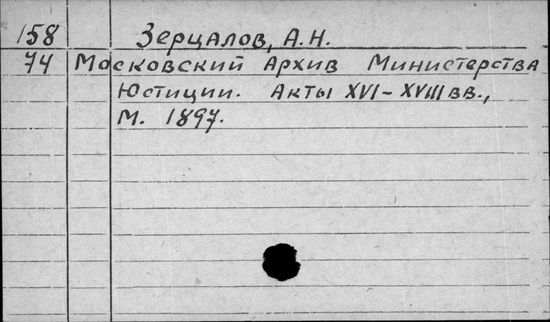 158 Зерцалов, А.Н.
74 Московский Архив Министерства
Юстиции. Акты XVI-XVIII вв.,
М. 1897.